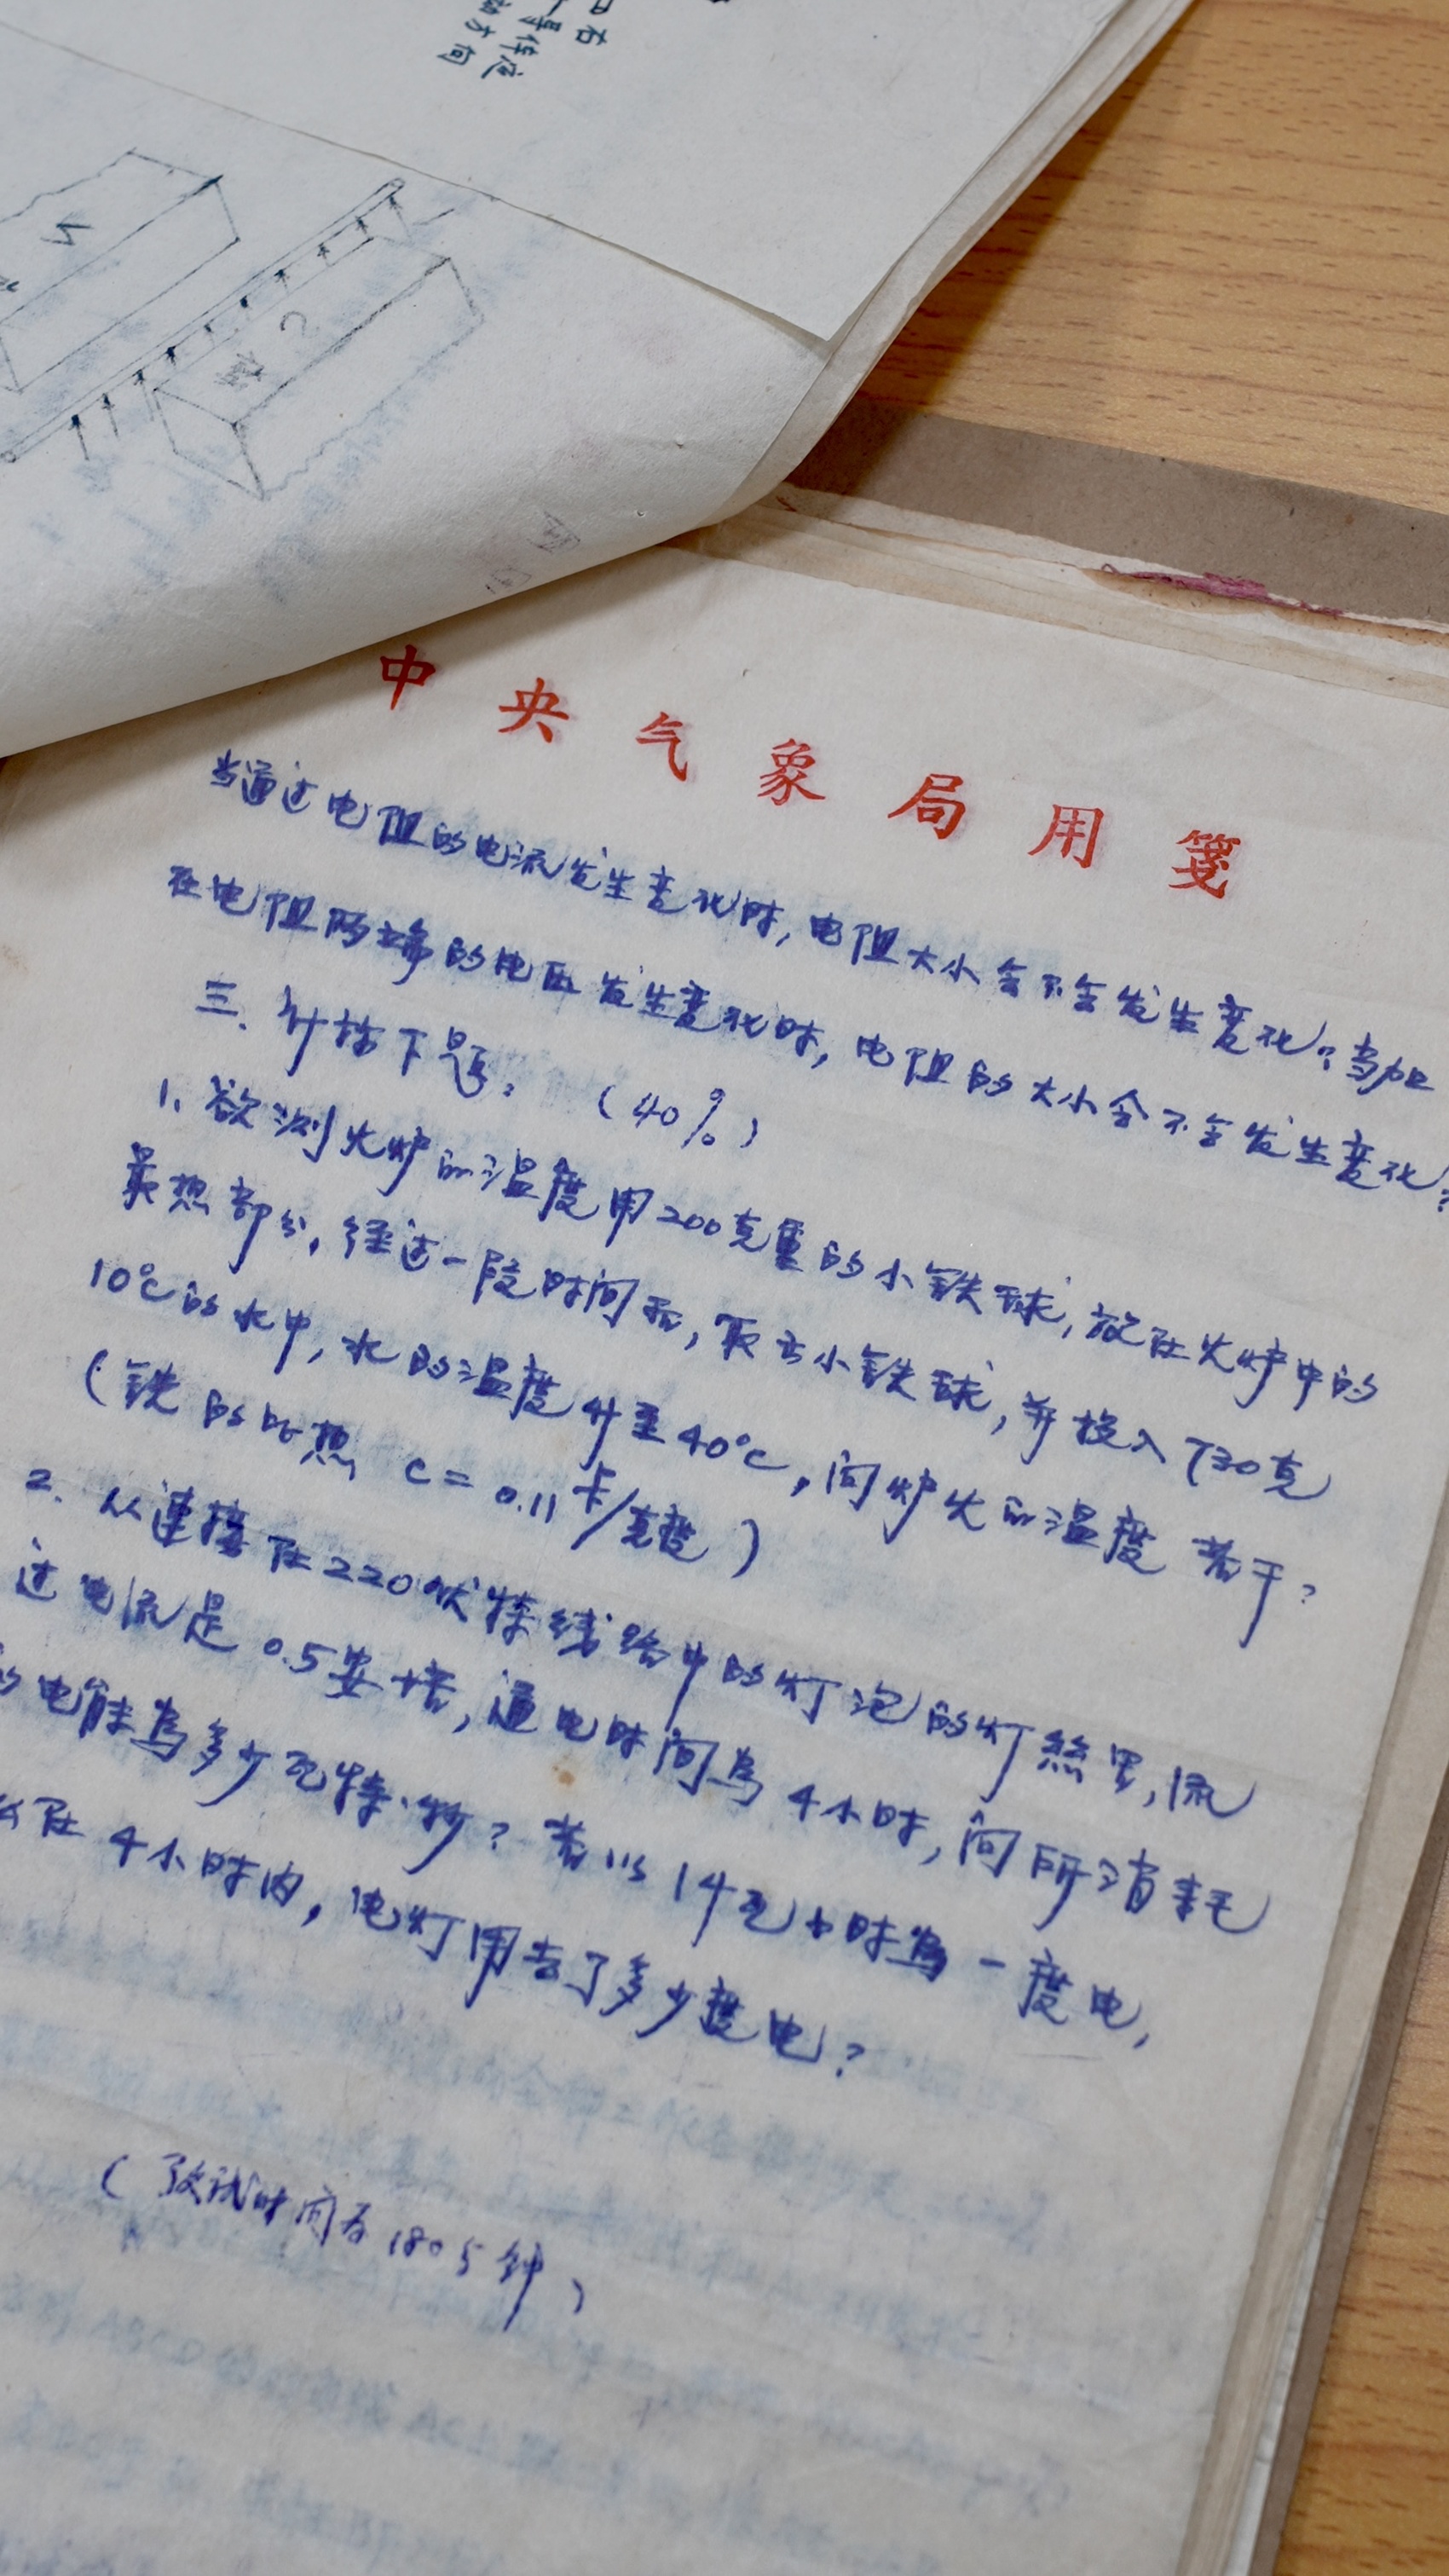 右
导体运
动方向
S
中央气象局用笺
当通过电阻的电流发生变化时,电阻大小会不会发生变化?当加
在电阻两端的电压发生变化时,电阻的大小会不会发生变化?
三、计标下题: (40%)
1、欲测火炉的温度用200克重的小铁球,放在火炉中的
最热部分,经过一段时间后,取出小铁球,并投入730克
10℃的水中,水的温度升至40℃,问炉火的温度若干?
(铁的比热 c=0.11卡/克度)
2. 从连接在220伏特线路中的灯泡的灯丝里,流
过电流是0.5安培,通电时间为4小时,问所消耗
的电能为多少瓦特·秒?若以1千瓦小时为一度电,
么在4小时内,电灯用去了多少度电?
(考试时间为180分钟)